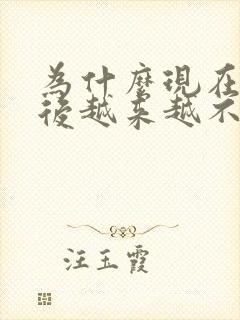 為什麼現在
後越來越不
汪玉霞